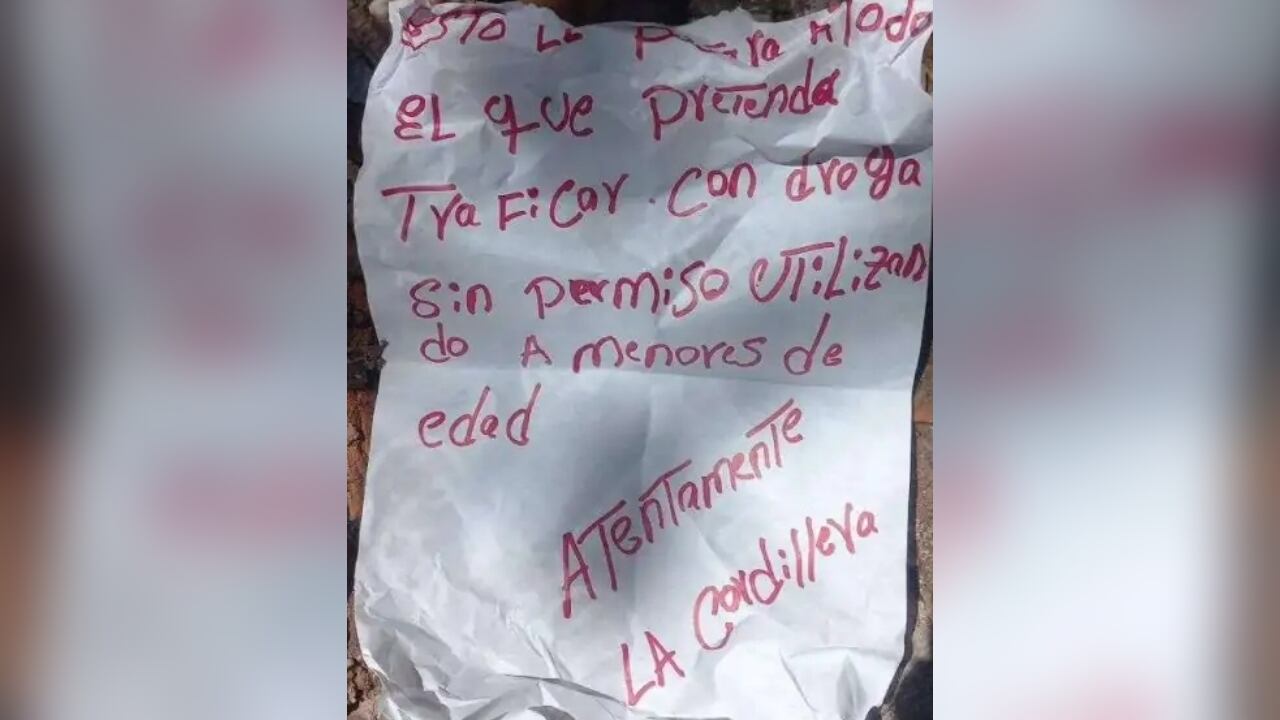 ESTO LE Pasara A Todo
EL que pretenda
Traficar con droga
sin permiso utilizan
do A menores de
edad
Atentamente
LA Cordillera